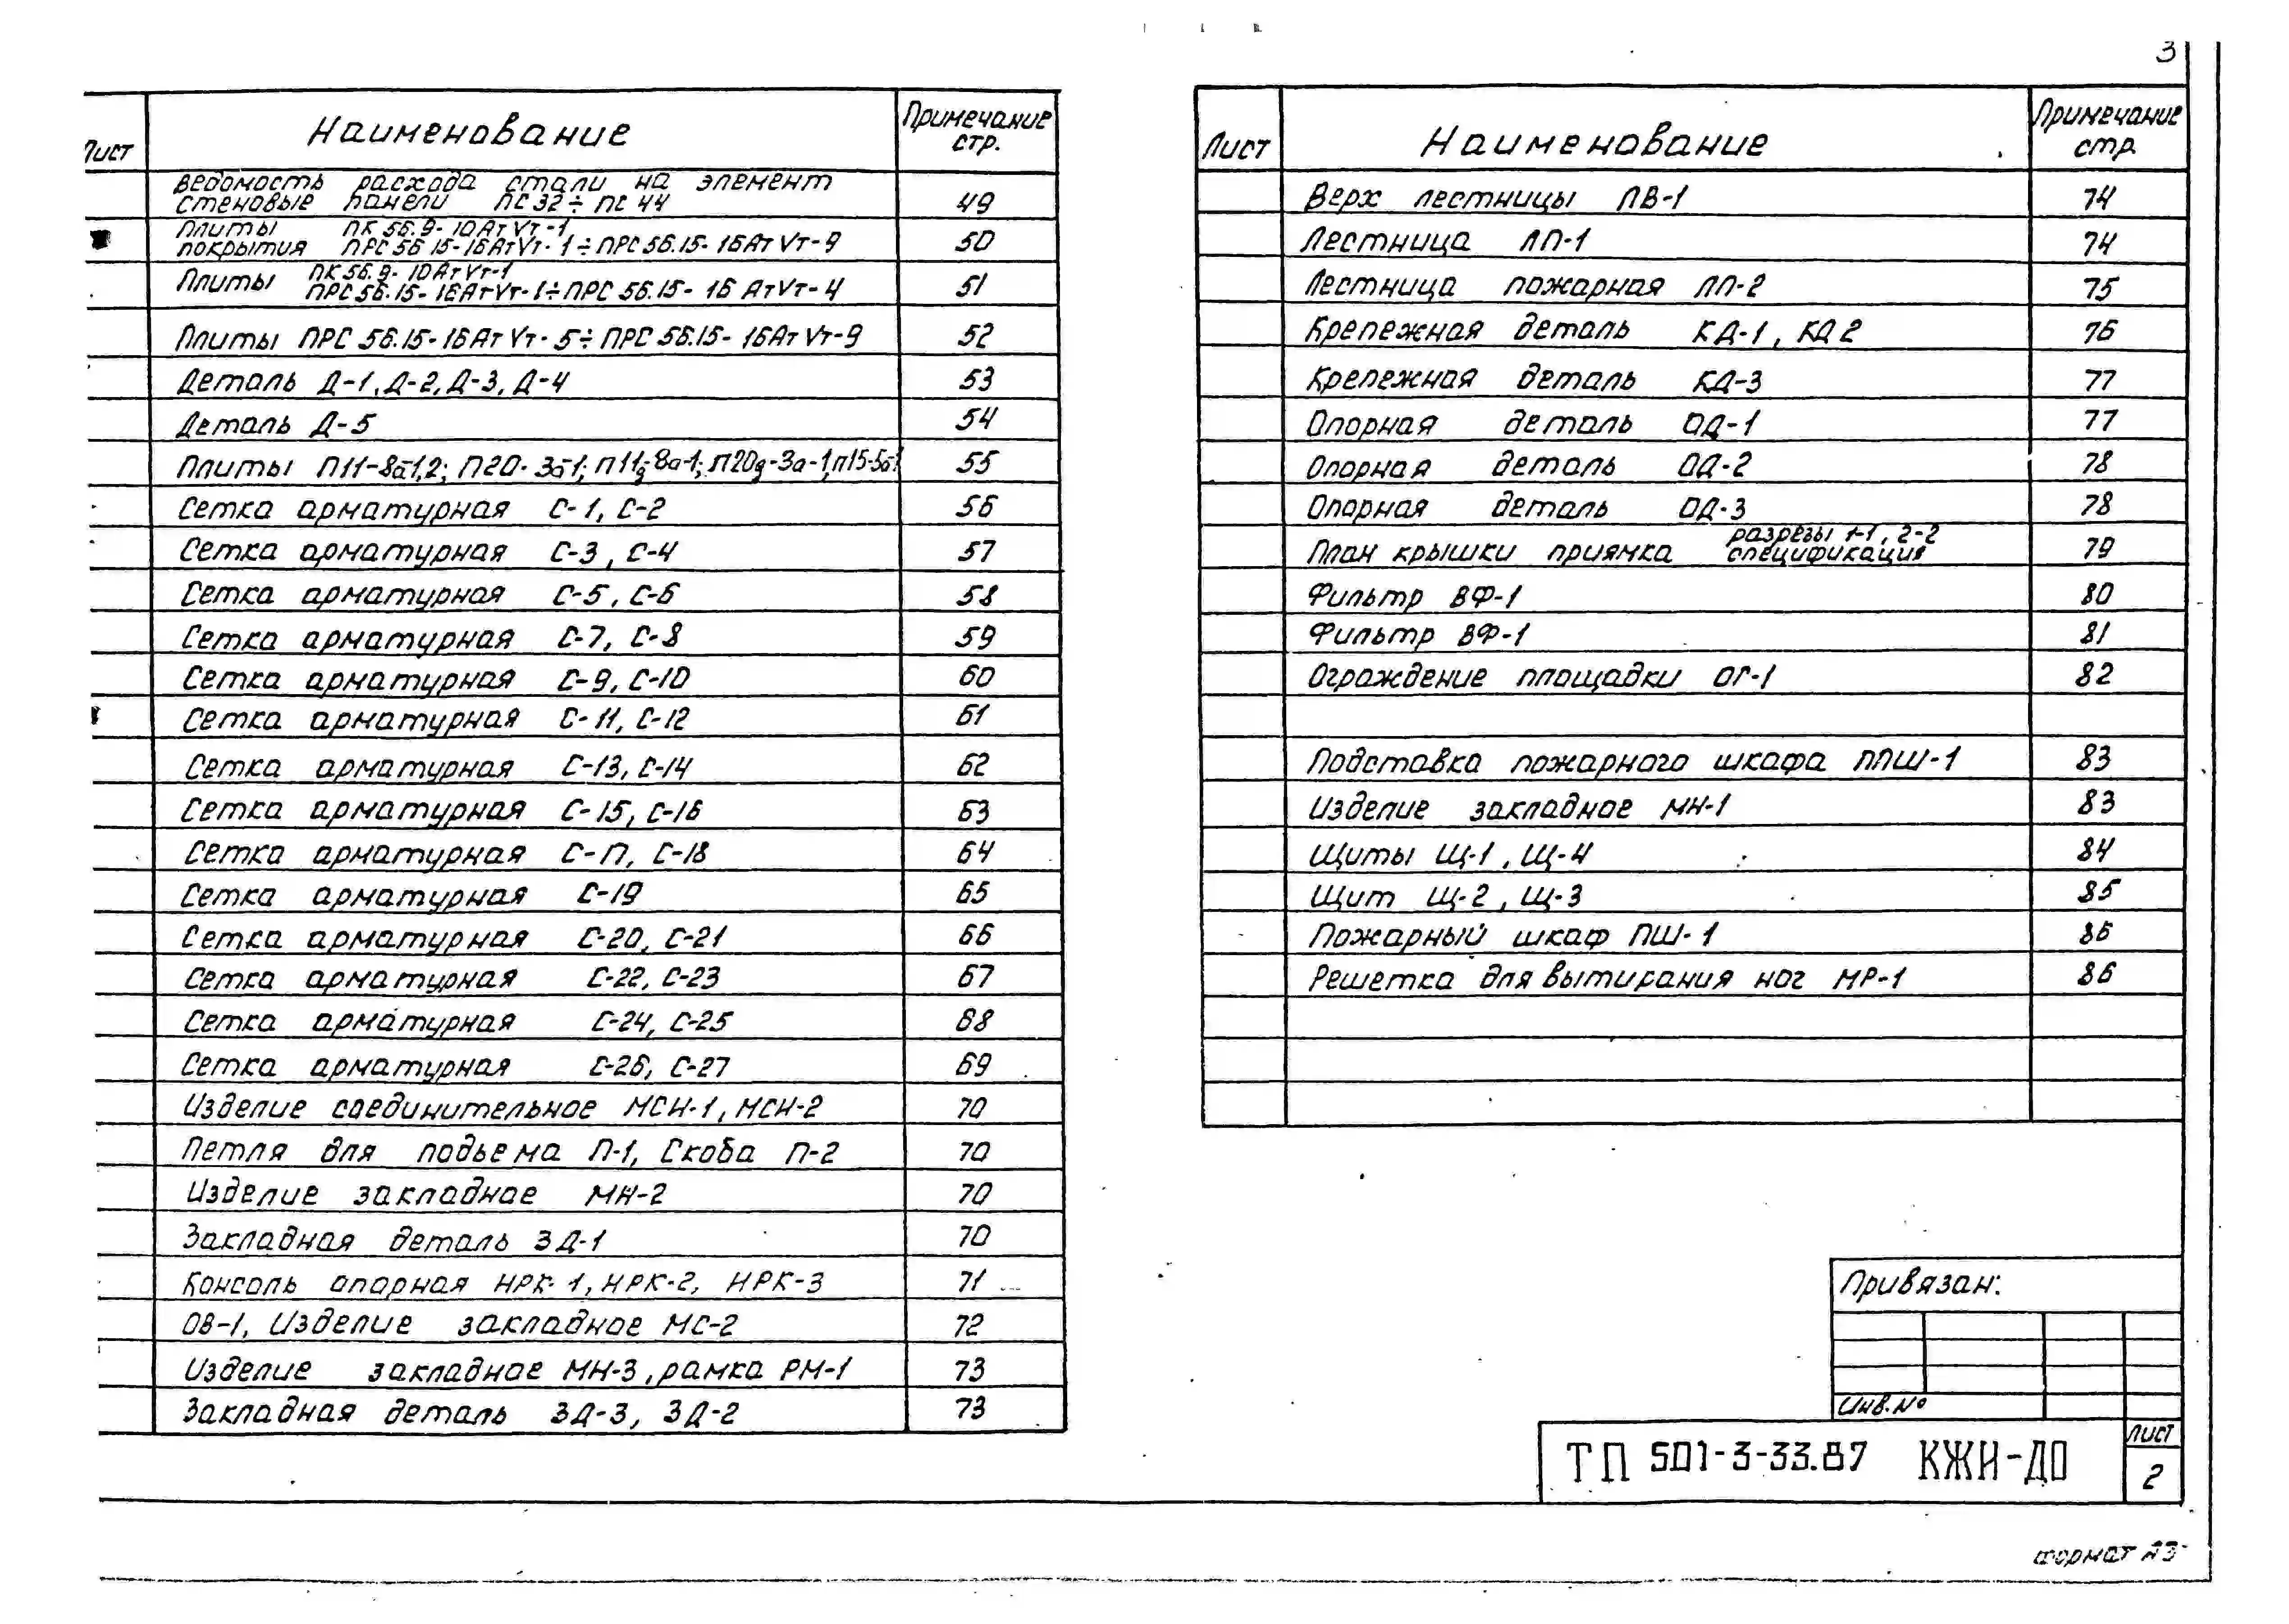 3
Лист Наименование Примечание стр.
Ведомость расхода стали на элемент
стеновые панели ПС32÷ПС44 49
Плиты ПК 56.9-10АтVт-1
покрытия ПРС 56.15-16АтVт-1÷ПРС 56.15-16АтVт-9 50
Плиты ПК 56.9-10АтVт-1
ПРС 56.15-16АтVт-1÷ПРС 56.15-16АтVт-4 51
Плиты ПРС 56.15-16АтVт-5÷ПРС 56.15-16АтVт-9 52
Деталь Д-1, Д-2, Д-3, Д-4 53
Деталь Д-5 54
Плиты П11-8а-1,2; П20-3а-1; П11д-8а-1; П20д-3а-1; П15-5а-1 55
Сетка арматурная С-1, С-2 56
Сетка арматурная С-3, С-4 57
Сетка арматурная С-5, С-6 58
Сетка арматурная С-7, С-8 59
Сетка арматурная С-9, С-10 60
Сетка арматурная С-11, С-12 61
Сетка арматурная С-13, С-14 62
Сетка арматурная С-15, С-16 63
Сетка арматурная С-17, С-18 64
Сетка арматурная С-19 65
Сетка арматурная С-20, С-21 66
Сетка арматурная С-22, С-23 67
Сетка арматурная С-24, С-25 68
Сетка арматурная С-26, С-27 69
Изделие соединительное МСН-1, МСН-2 70
Петля для подьема П-1, Скоба П-2 70
Изделие закладное МН-2 70
Закладная деталь ЗД-1 70
Консоль опорная НРК-1, НРК-2, НРК-3 71
ОВ-1, Изделие закладное МС-2 72
Изделие закладное МН-3, рамка РМ-1 73
Закладная деталь ЗД-3, ЗД-2 73
Лист Наименование Примечание стр.
Верх лестницы ЛВ-1 74
Лестница ЛП-1 74
Лестница пожарная ЛП-2 75
Крепежная деталь КД-1, КД2 76
Крепежная деталь КД-3 77
Опорная деталь ОД-1 77
Опорная деталь ОД-2 78
Опорная деталь ОД-3 78
План крышки приямка разрезы 1-1, 2-2
спецификация 79
Фильтр ВФ-1 80
Фильтр ВФ-1 81
Ограждение площадки ОГ-1 82
Подставка пожарного шкафа ППШ-1 83
Изделие закладное МН-1 83
Щиты Щ-1, Щ-4 84
Щит Щ-2, Щ-3 85
Пожарный шкаф ПШ-1 86
Решетка для вытирания ног МР-1 86
Привязан:
Инв.№
ТП 501-3-33.87 КЖИ-Д0
Лист
2
Формат А3